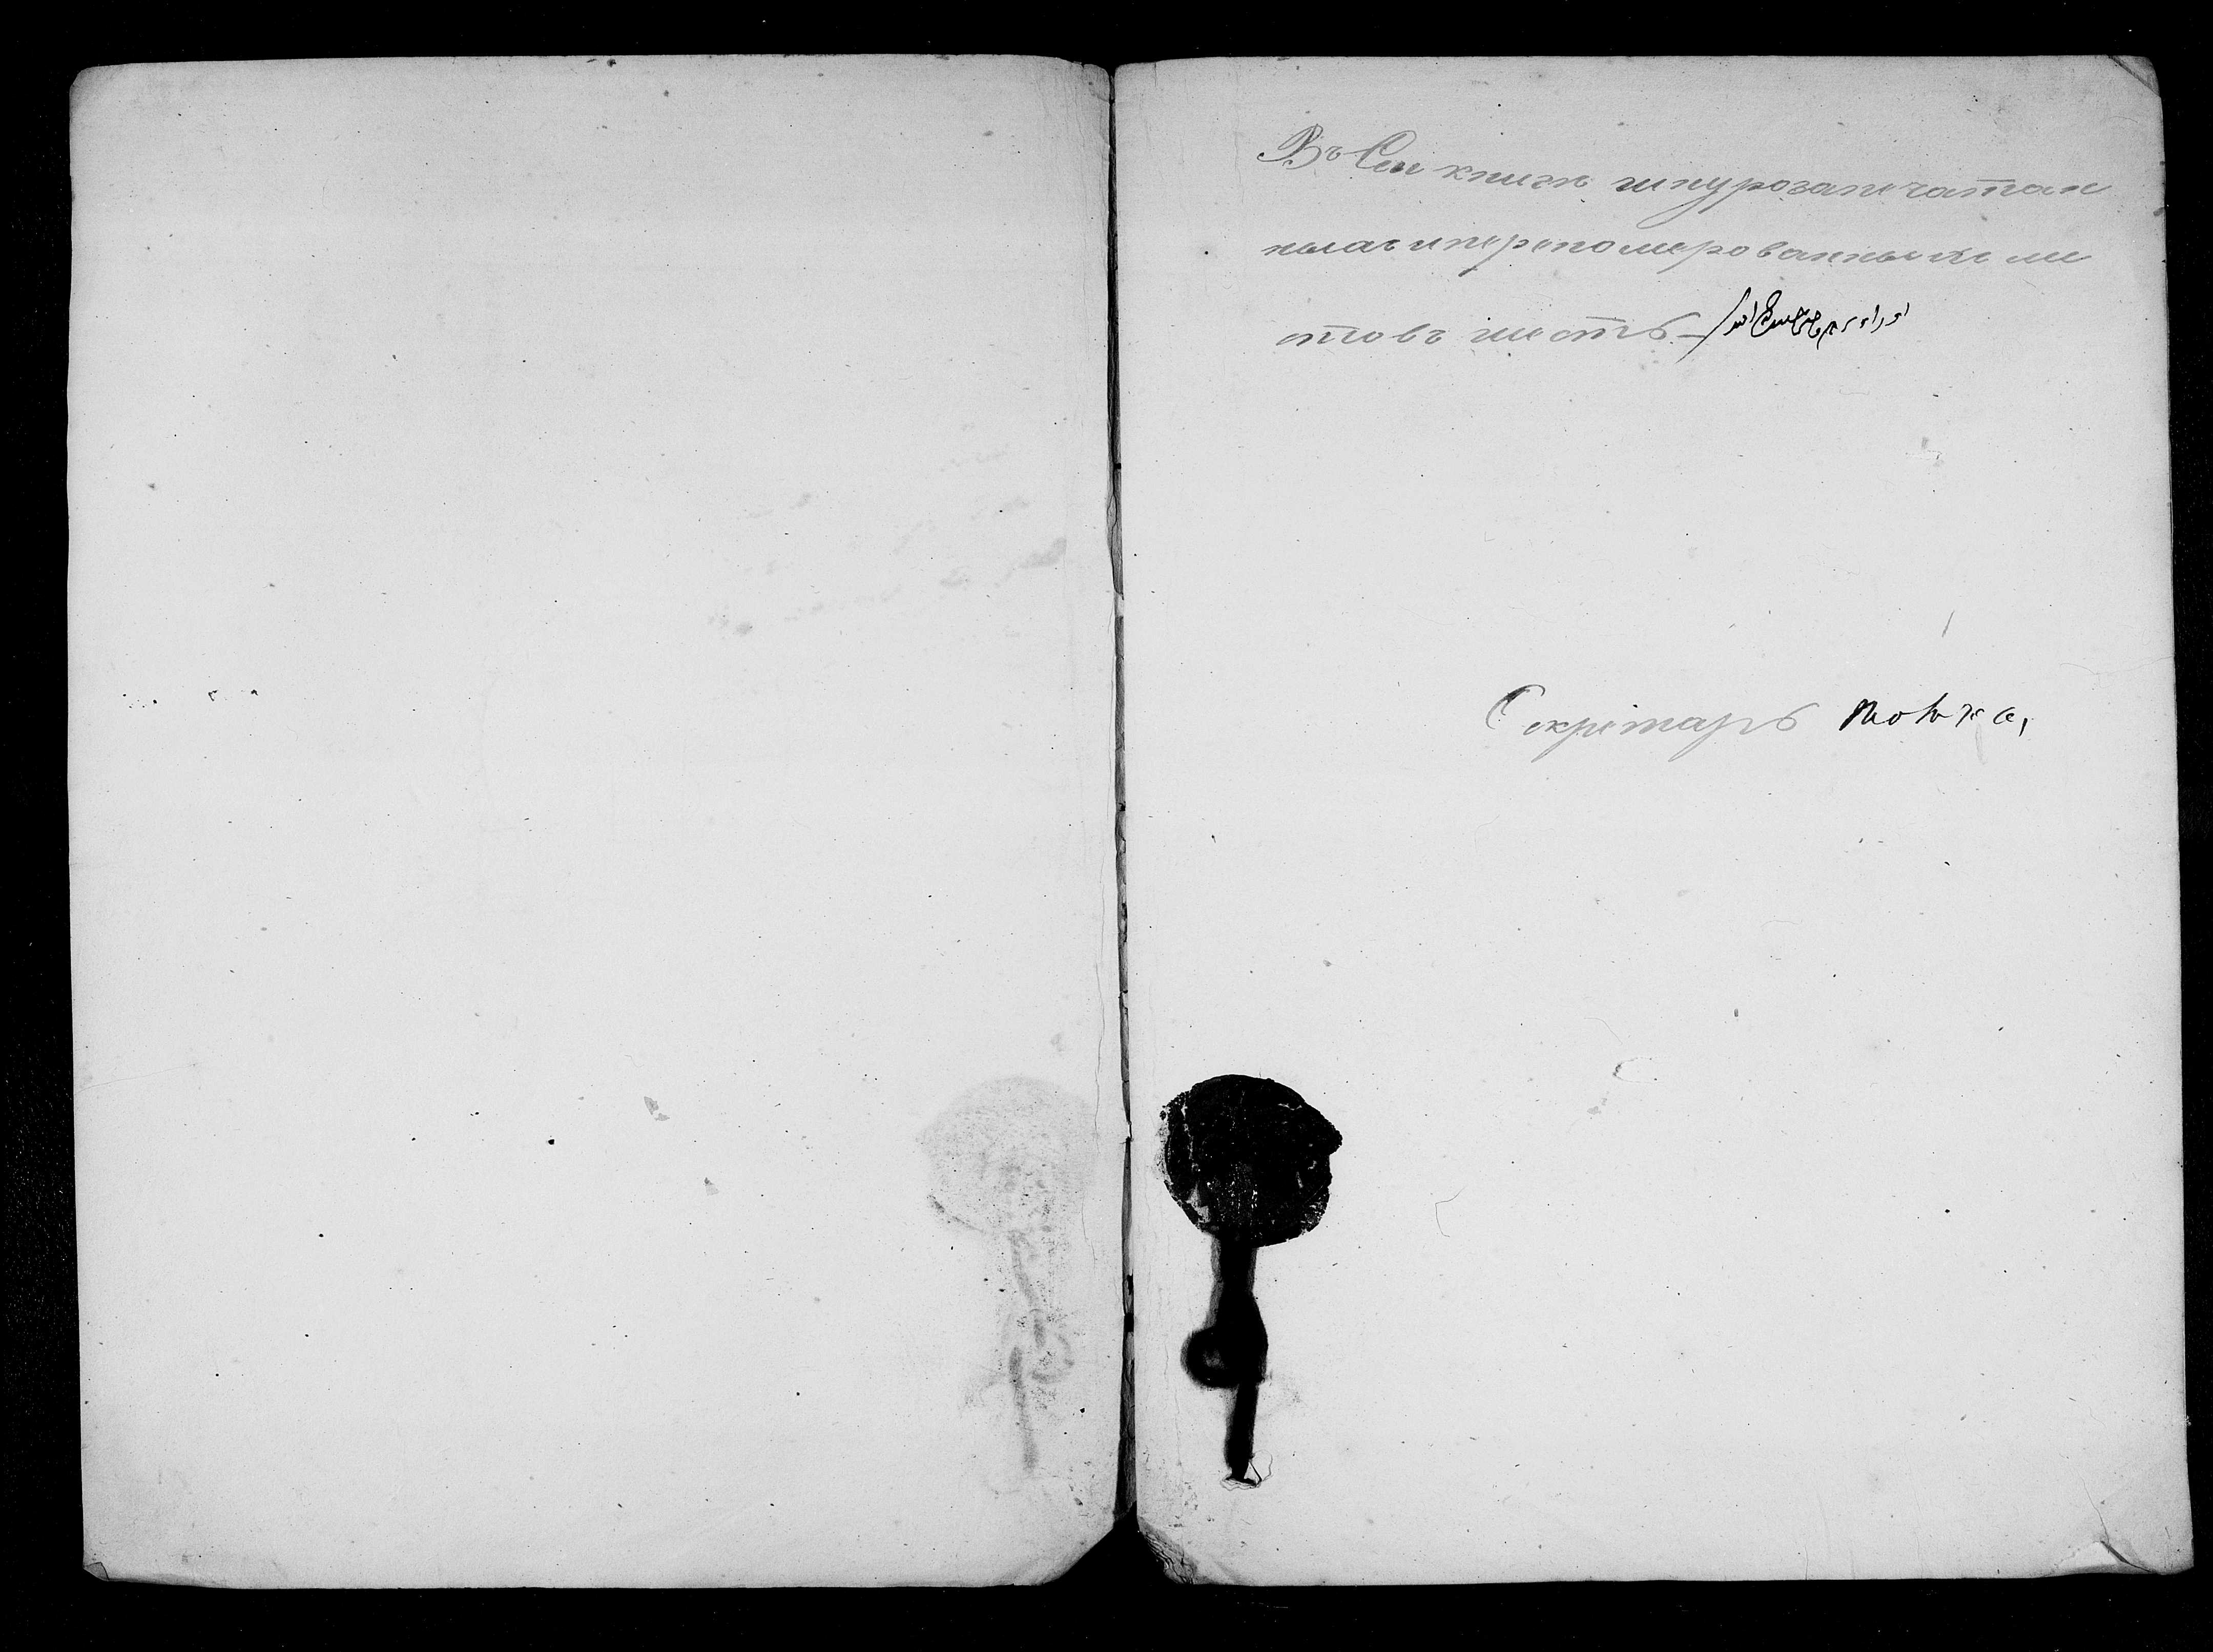 Въ Сеи книгѣ шнурозапечатан
ныхъ иперепомерованныхъ ли
стовъ шесть
Секретарь